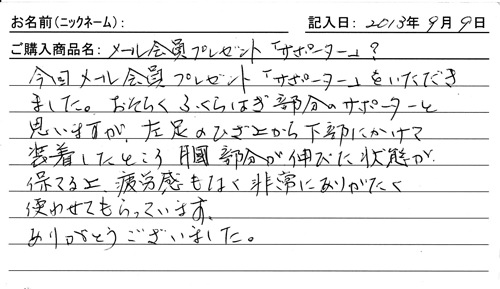 お名前(ニックネーム): 記入日: 2013年9月9日
ご購入商品名: メール会員プレゼント「サポーター」?
今回メール会員プレゼント「サポーター」をいただき
ました。おそらくふくらはぎ部分のサポーターと
思いますが、左足のひざ上から下部にかけて
装着したところ膕部分が伸びた状態が
保てる上、疲労感もなく非常にありがたく
使わせてもらっています。
ありがとうございました。